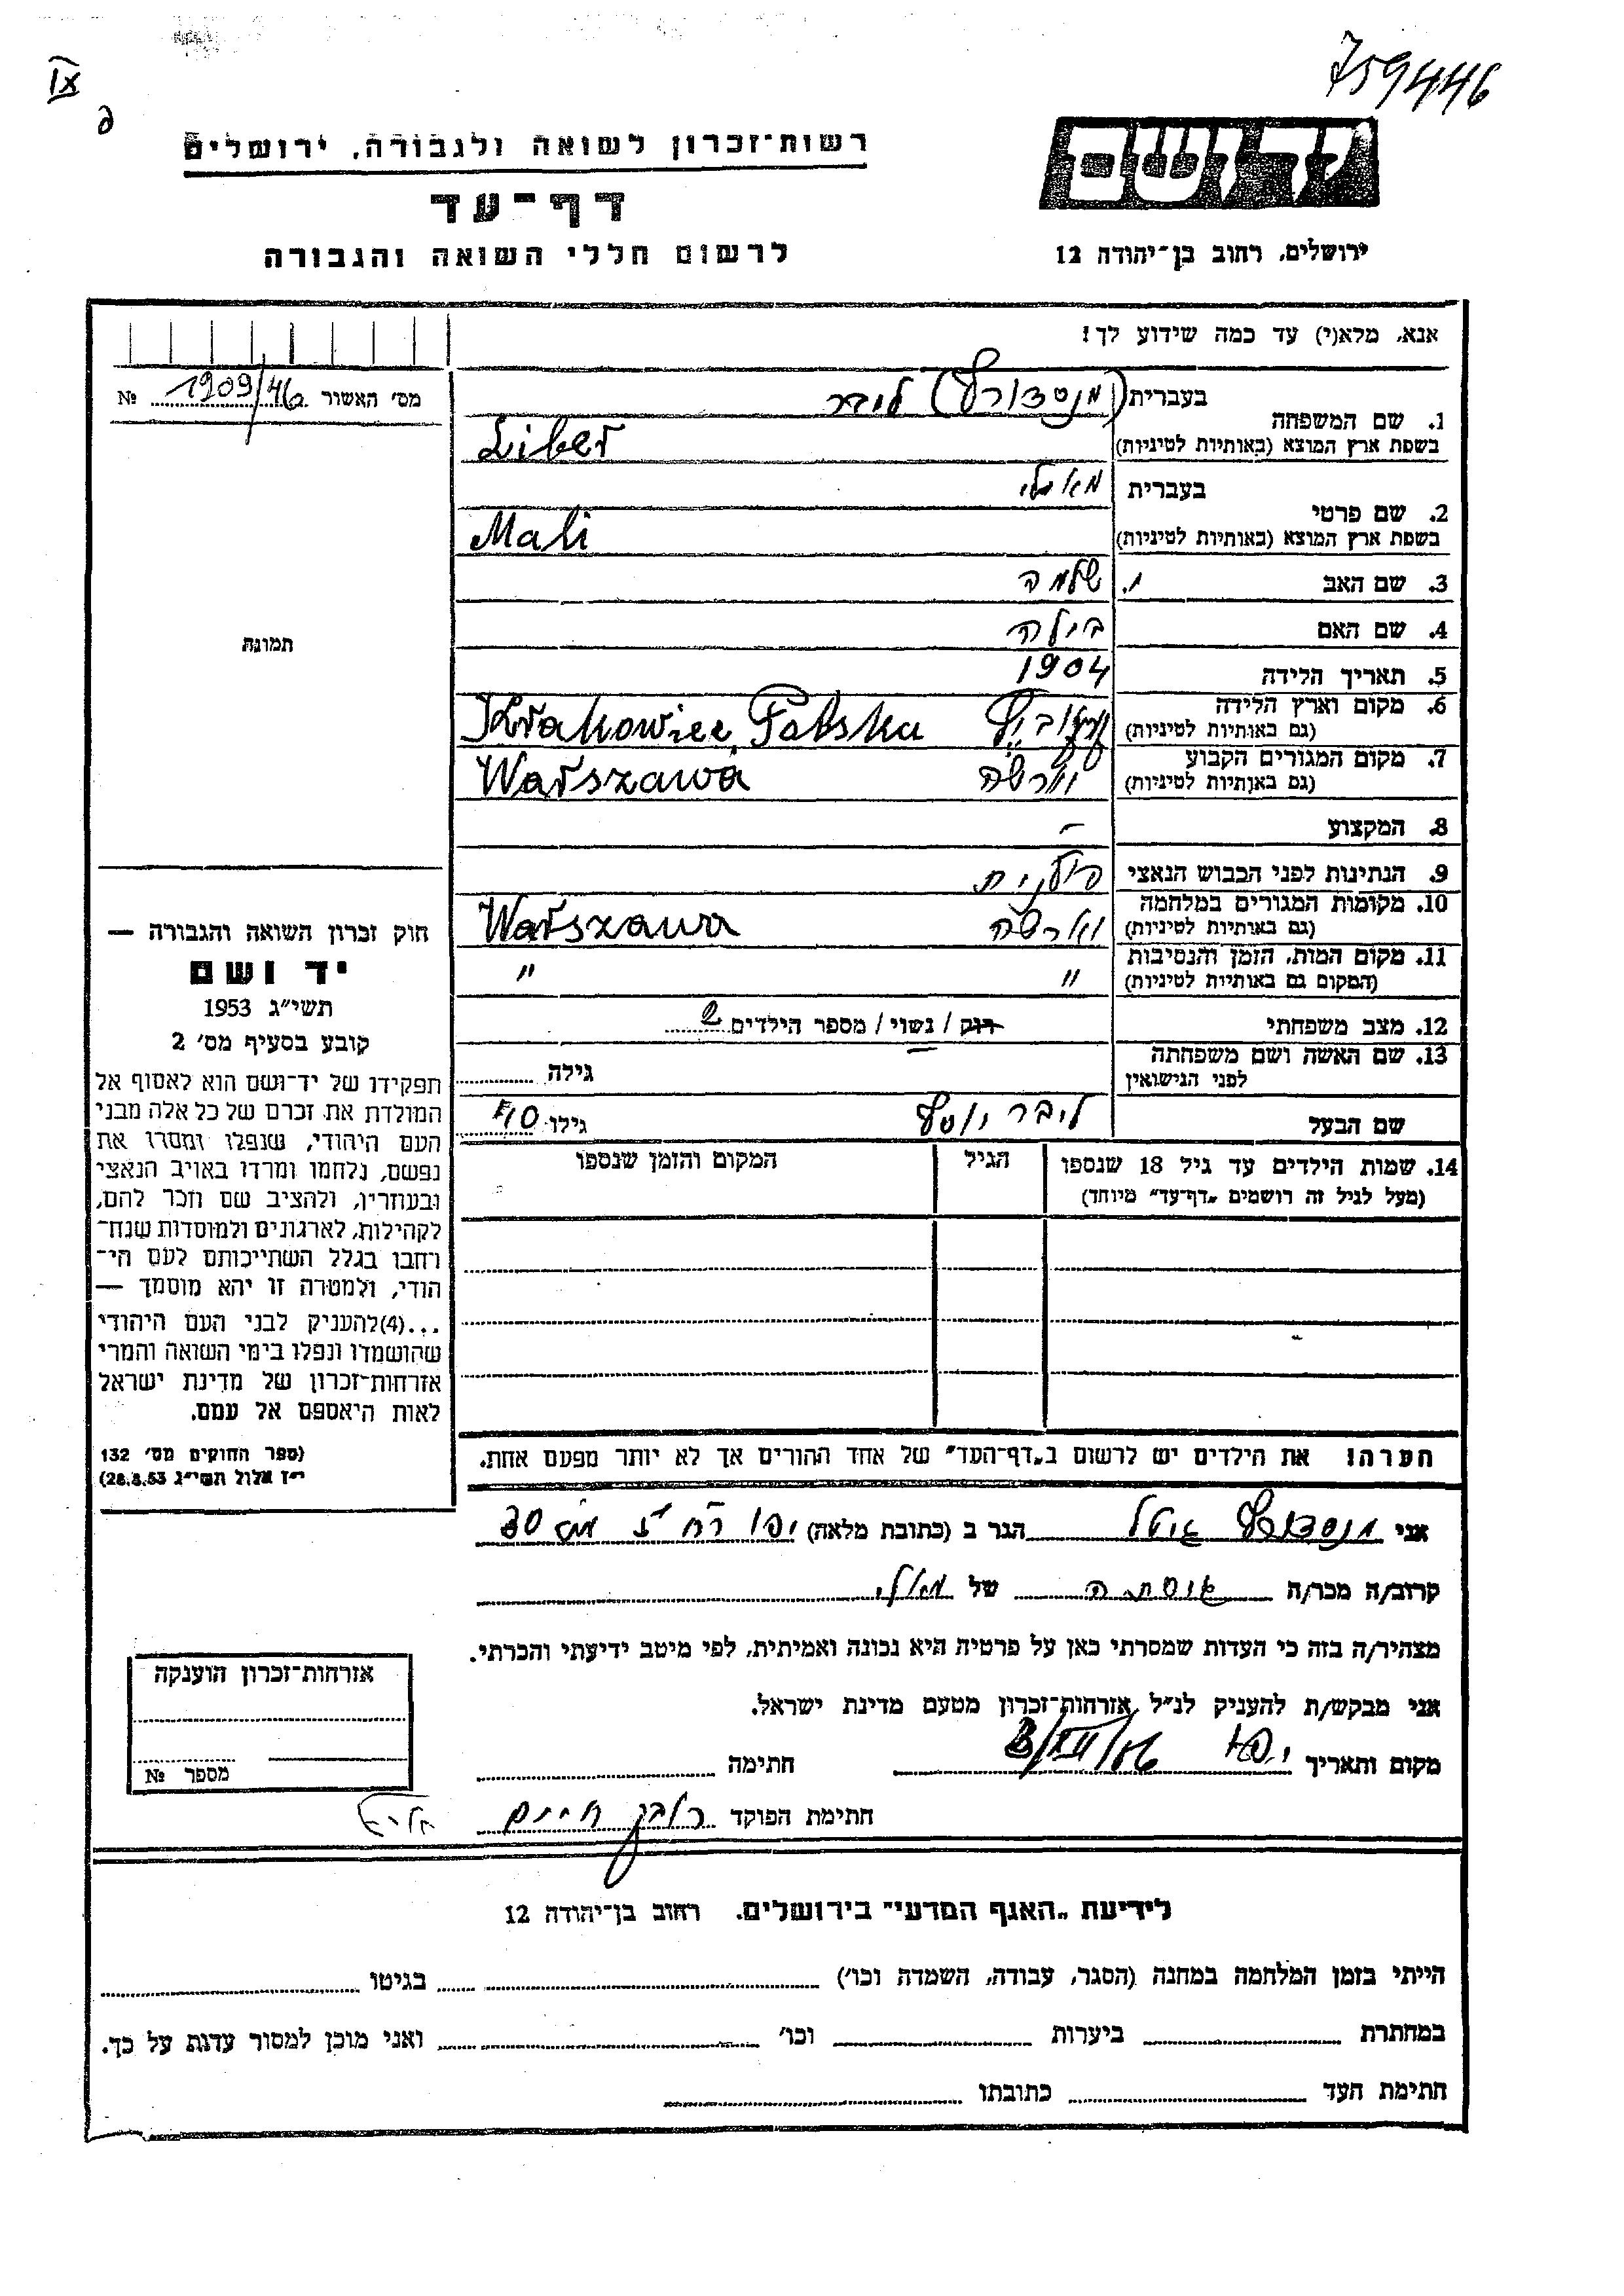 759446
IX
יד ושם
רשות־זכרון לשואה ולגבורה, ירושלים
דף־עד
לרשום חללי השואה והגבורה
ירושלים, רחוב בן־יהודה 12
אנא, מלא(י) עד כמה שידוע לך!
מס' האשור 1909/46 №
1. שם המשפחה
בעברית (מנטדורף) ליבר
בשפת ארץ המוצא (באותיות לטיניות) Liber
2. שם פרטי
בעברית מאלי
בשפת ארץ המוצא (באותיות לטיניות) Mali
3. שם האב שלמה
4. שם האם בילה
5. תאריך הלידה 1904
6. מקום וארץ הלידה
(גם באותיות לטיניות) Krakowiec, Polska
7. מקום המגורים הקבוע
(גם באותיות לטיניות) ווארשה Warszawa
8. המקצוע –
9. הנתינות לפני הכבוש הנאצי פולנית
10. מקומות המגורים במלחמה
(גם באותיות לטיניות) ווארשה Warszawa
11. מקום המות, הזמן והנסיבות
(המקום גם באותיות לטיניות) " "
12. מצב משפחתי רווק / נשוי / מספר הילדים 2
13. שם האשה ושם משפחתה
לפני הנישואין
גילה
שם הבעל ליבר יוסף גילו 40
14. שמות הילדים עד גיל 18 שנספו
(מעל לגיל זה רושמים „דף־עד” מיוחד)
הגיל
המקום והזמן שנספו
הערה! את הילדים יש לרשום ב„דף־העד” של אחד ההורים אך לא יותר מפעם אחת.
תמונה
חוק זכרון השואה והגבורה —
יד ושם
תשי״ג 1953
קובע בסעיף מס' 2
תפקידו של יד־ושם הוא לאסוף אל
המולדת את זכרם של כל אלה מבני
העם היהודי, שנפלו ומסרו את
נפשם, נלחמו ומרדו באויב הנאצי
ובעוזריו, ולהציב שם וזכר להם,
לקהילות, לארגונים ולמוסדות שנח־
רבו בגלל השתייכותם לעם הי־
הודי, ולמטרה זו יהא מוסמך —
...(4)להעניק לבני העם היהודי
שהושמדו ונפלו בימי השואה והמרי
אזרחות־זכרון של מדינת ישראל
לאות היאספם אל עמם.
(ספר החוקים מס' 132
י״ז אלול תשי״ג 28.8.53)
אני גיטל הגר ב (כתובת מלאה) יפו 30
קרוב/ה מכר/ה של מאלי
מצהיר/ה בזה כי העדות שמסרתי כאן על פרטיה היא נכונה ואמיתית, לפי מיטב ידיעתי והכרתי.
אני מבקש/ת להעניק לנ״ל אזרחות־זכרון מטעם מדינת ישראל.
מקום ותאריך יפו 3/XII/56 חתימה
חתימת הפוקד חיים
אזרחות־זכרון הוענקה
מספר №
לידיעת „האגף המדעי” בירושלים. רחוב בן־יהודה 12
הייתי בזמן המלחמה במחנה (הסגר, עבודה, השמדה וכו') בגיטו
במחתרת ביערות וכו' ואני מוכן למסור עדות על כך.
חתימת העד כתובתו